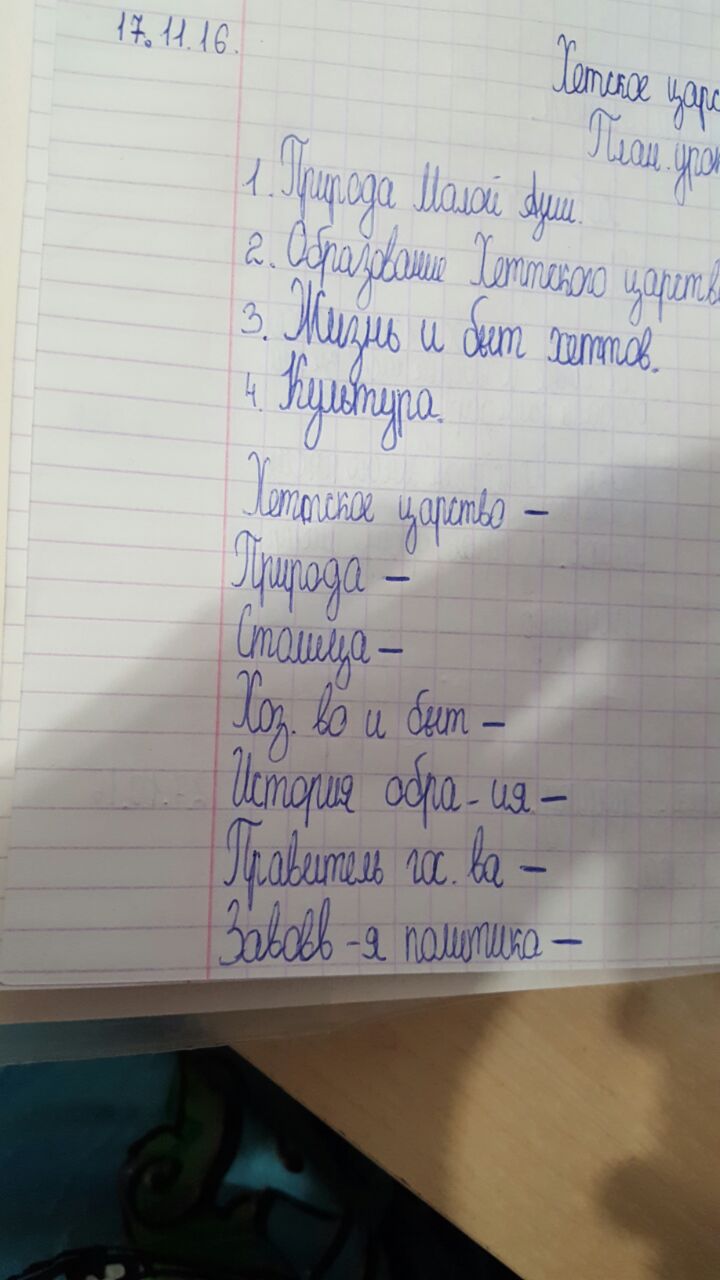 17.11.16.
Хетское царс
План. урок
1. Природа Малой Азии.
2. Образование Хеттского царств
3. Жизнь и быт хеттов.
4. Культура.
Хеттское царство –
Природа –
Столица –
Хоз. во и быт –
История обра-ия –
Правитель гос. ва –
Завоев-я политика –